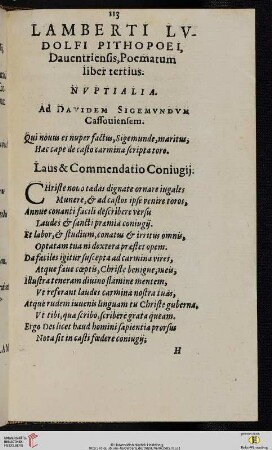 113
LAMBERTI LV-
DOLFI PITHOPOEI,
Dauentriensis, Poematum
liber tertius.
NVPTIALIA.
Ad DAVIDEM SIGEMVNDVM
Cassouiensem.
Qui nouus es nuper factus, Sigemunde, maritus,
Hac cape de casto carmina scripta toro.
Laus & Commendatio Coniugij.
CHriste nouo tædas dignate ornare iugales
Munere, & ad castos ipse venire toros,
Annue conanti facili describere versu
Laudes & sancti præmia coniugij.
Et labor, & studium, conatus & irritus omnis,
Optatam tua ni dextera præstet opem.
Da faciles igitur suscepta ad carmina vires,
Atque faue cœptis, Christe benigne, meis,
Illustra teneram diuino flamine mentem,
Vt referant laudes carmina nostra tuas,
Atque rudem iuuenis linguam tu Christe guberna,
Vt tibi, qua scribo, scribere grata queam.
Ergo Dei licet haud homini sapientia prorsus
Nota sit in casti fœdere coniugij;
H